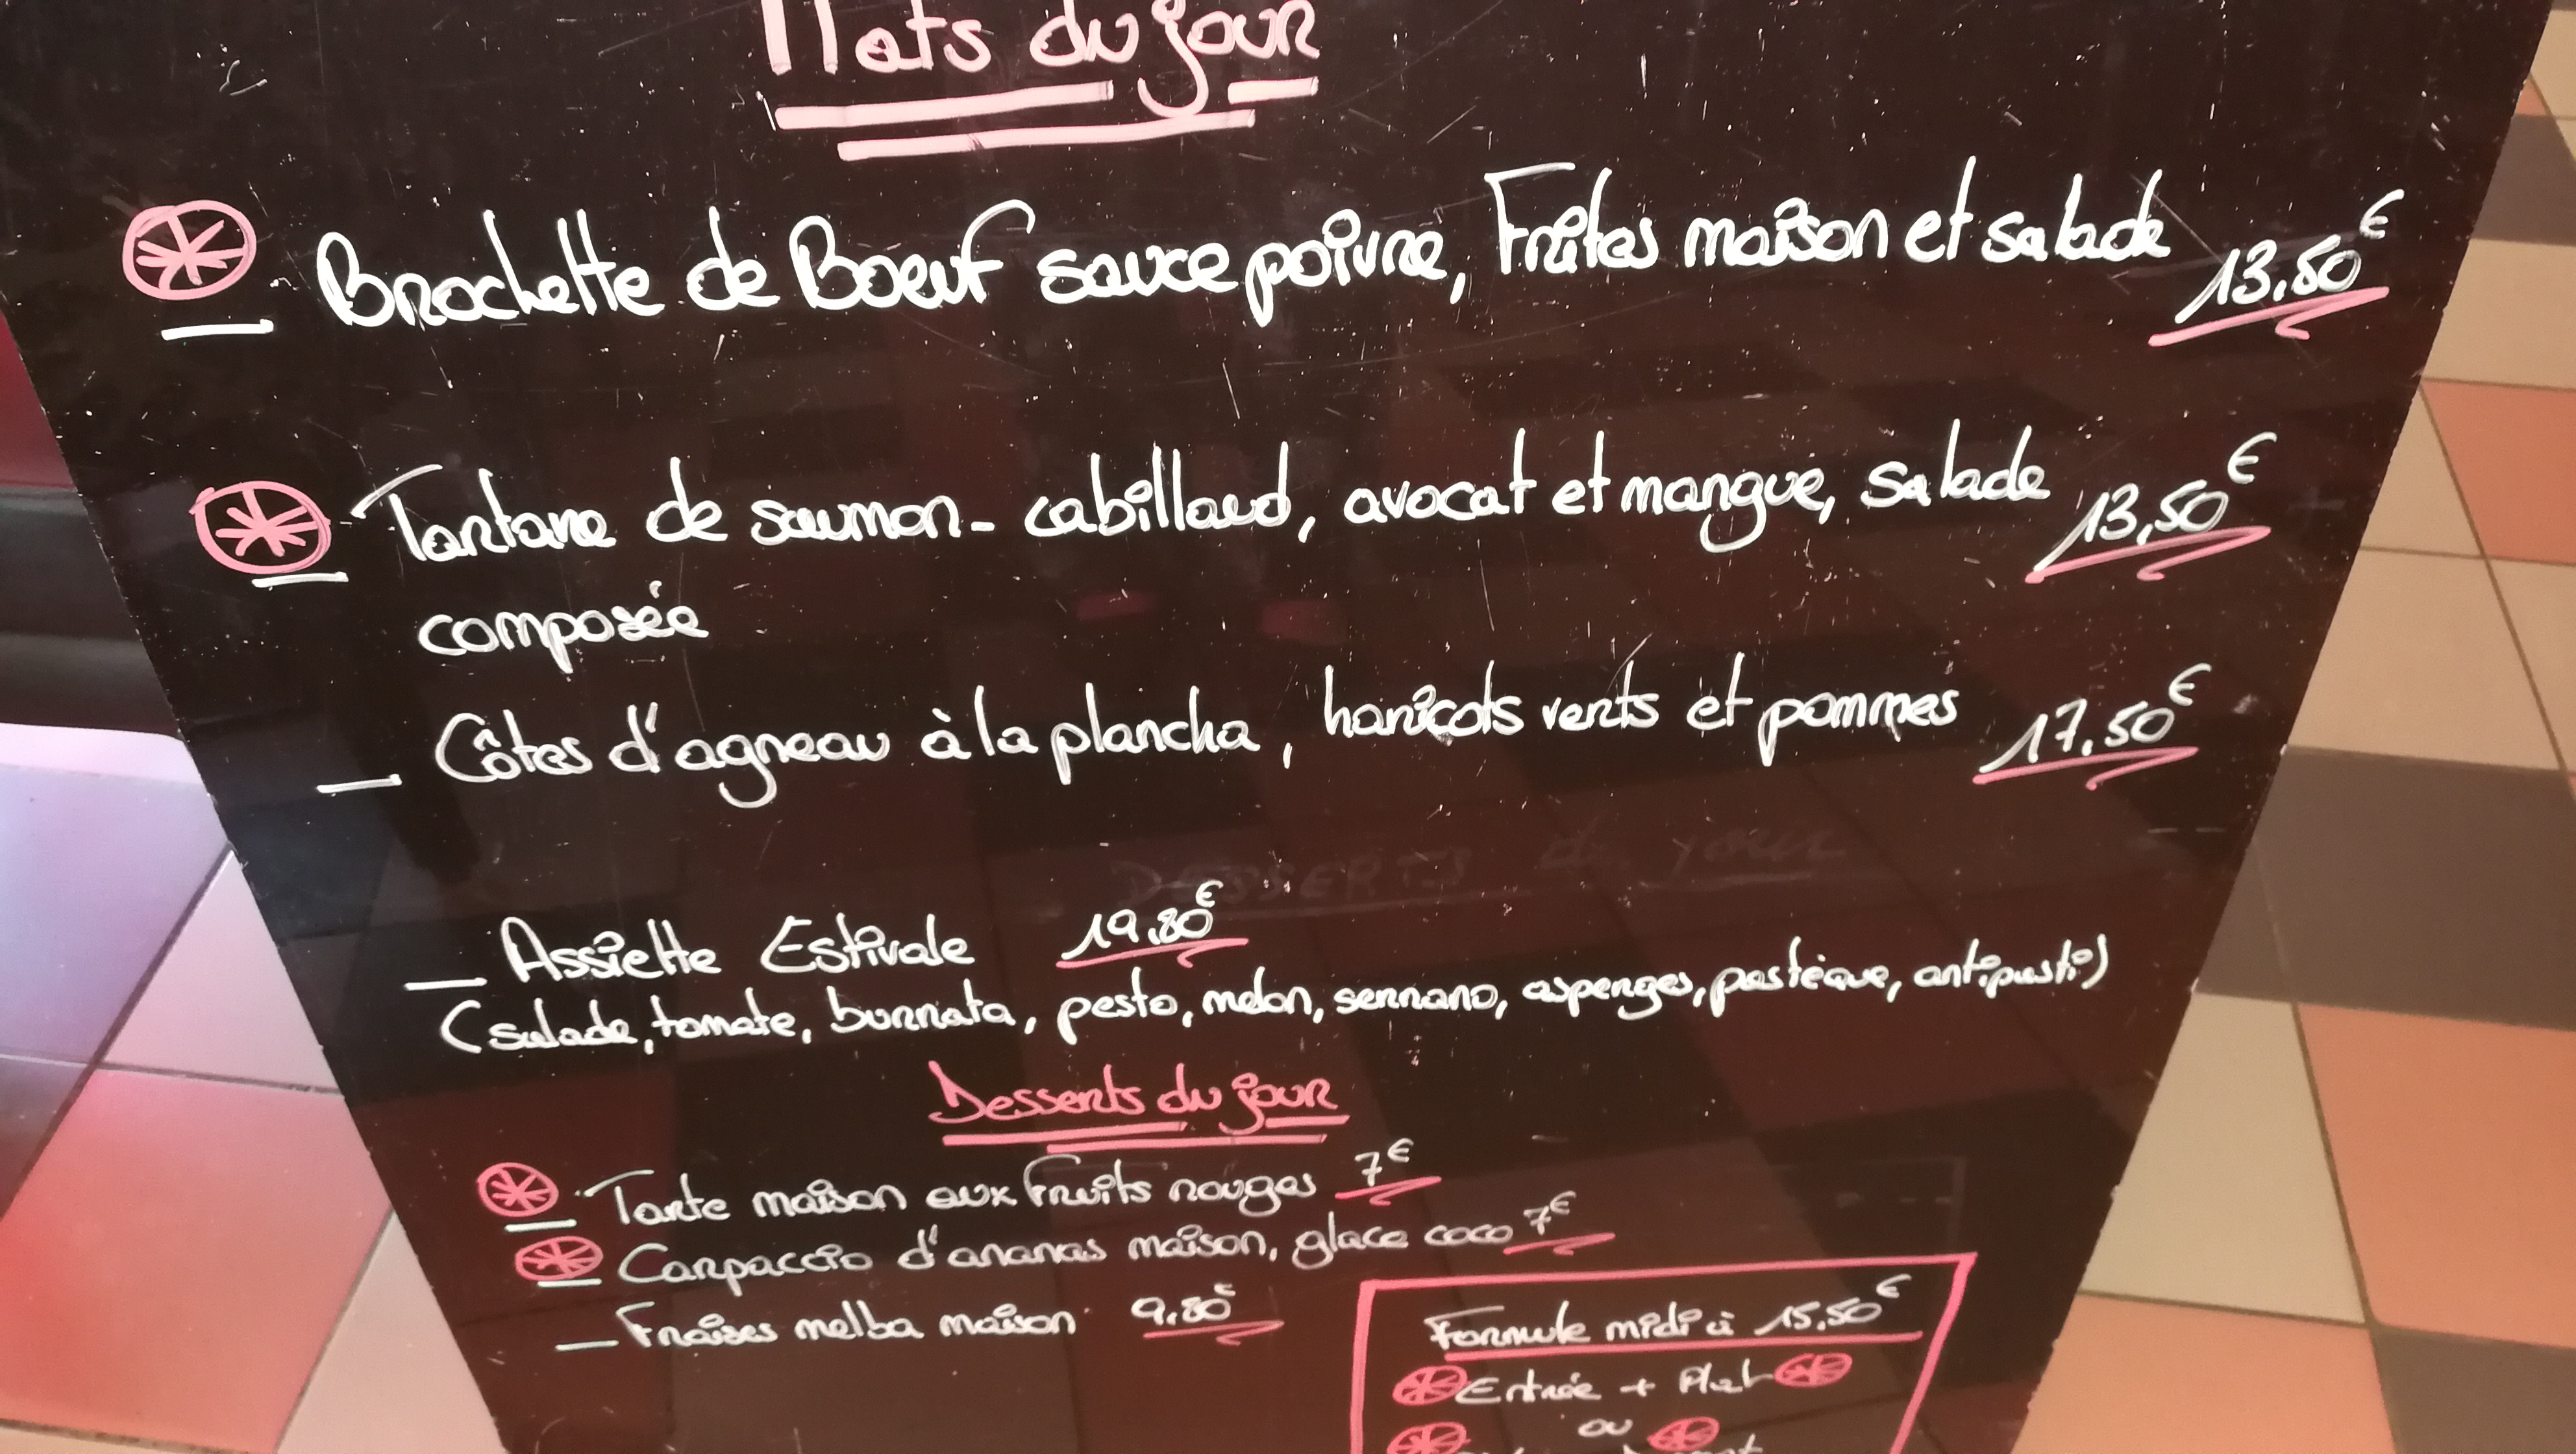 Plats du jour
Brochette de Boeuf sauce poivre, Frites maison et salade 13.50€
Tartare de saumon - cabillaud, avocat et mangue, salade 13,50€
composée
Côtes d'agneau à la plancha, haricots verts et pommes 17.50€
DESSERTS du jour
Assiette Estivale 19.80€
(salade, tomate, burrata, pesto, melon, serrano, asperges, pastèque, antipasti)
Desserts du jour
Tarte maison aux fruits rouges 7€
Carpaccio d'ananas maison, glace coco 7€
Fraises melba maison 9.80€
Formule midi à 15.50€
Entrée + Plat
ou